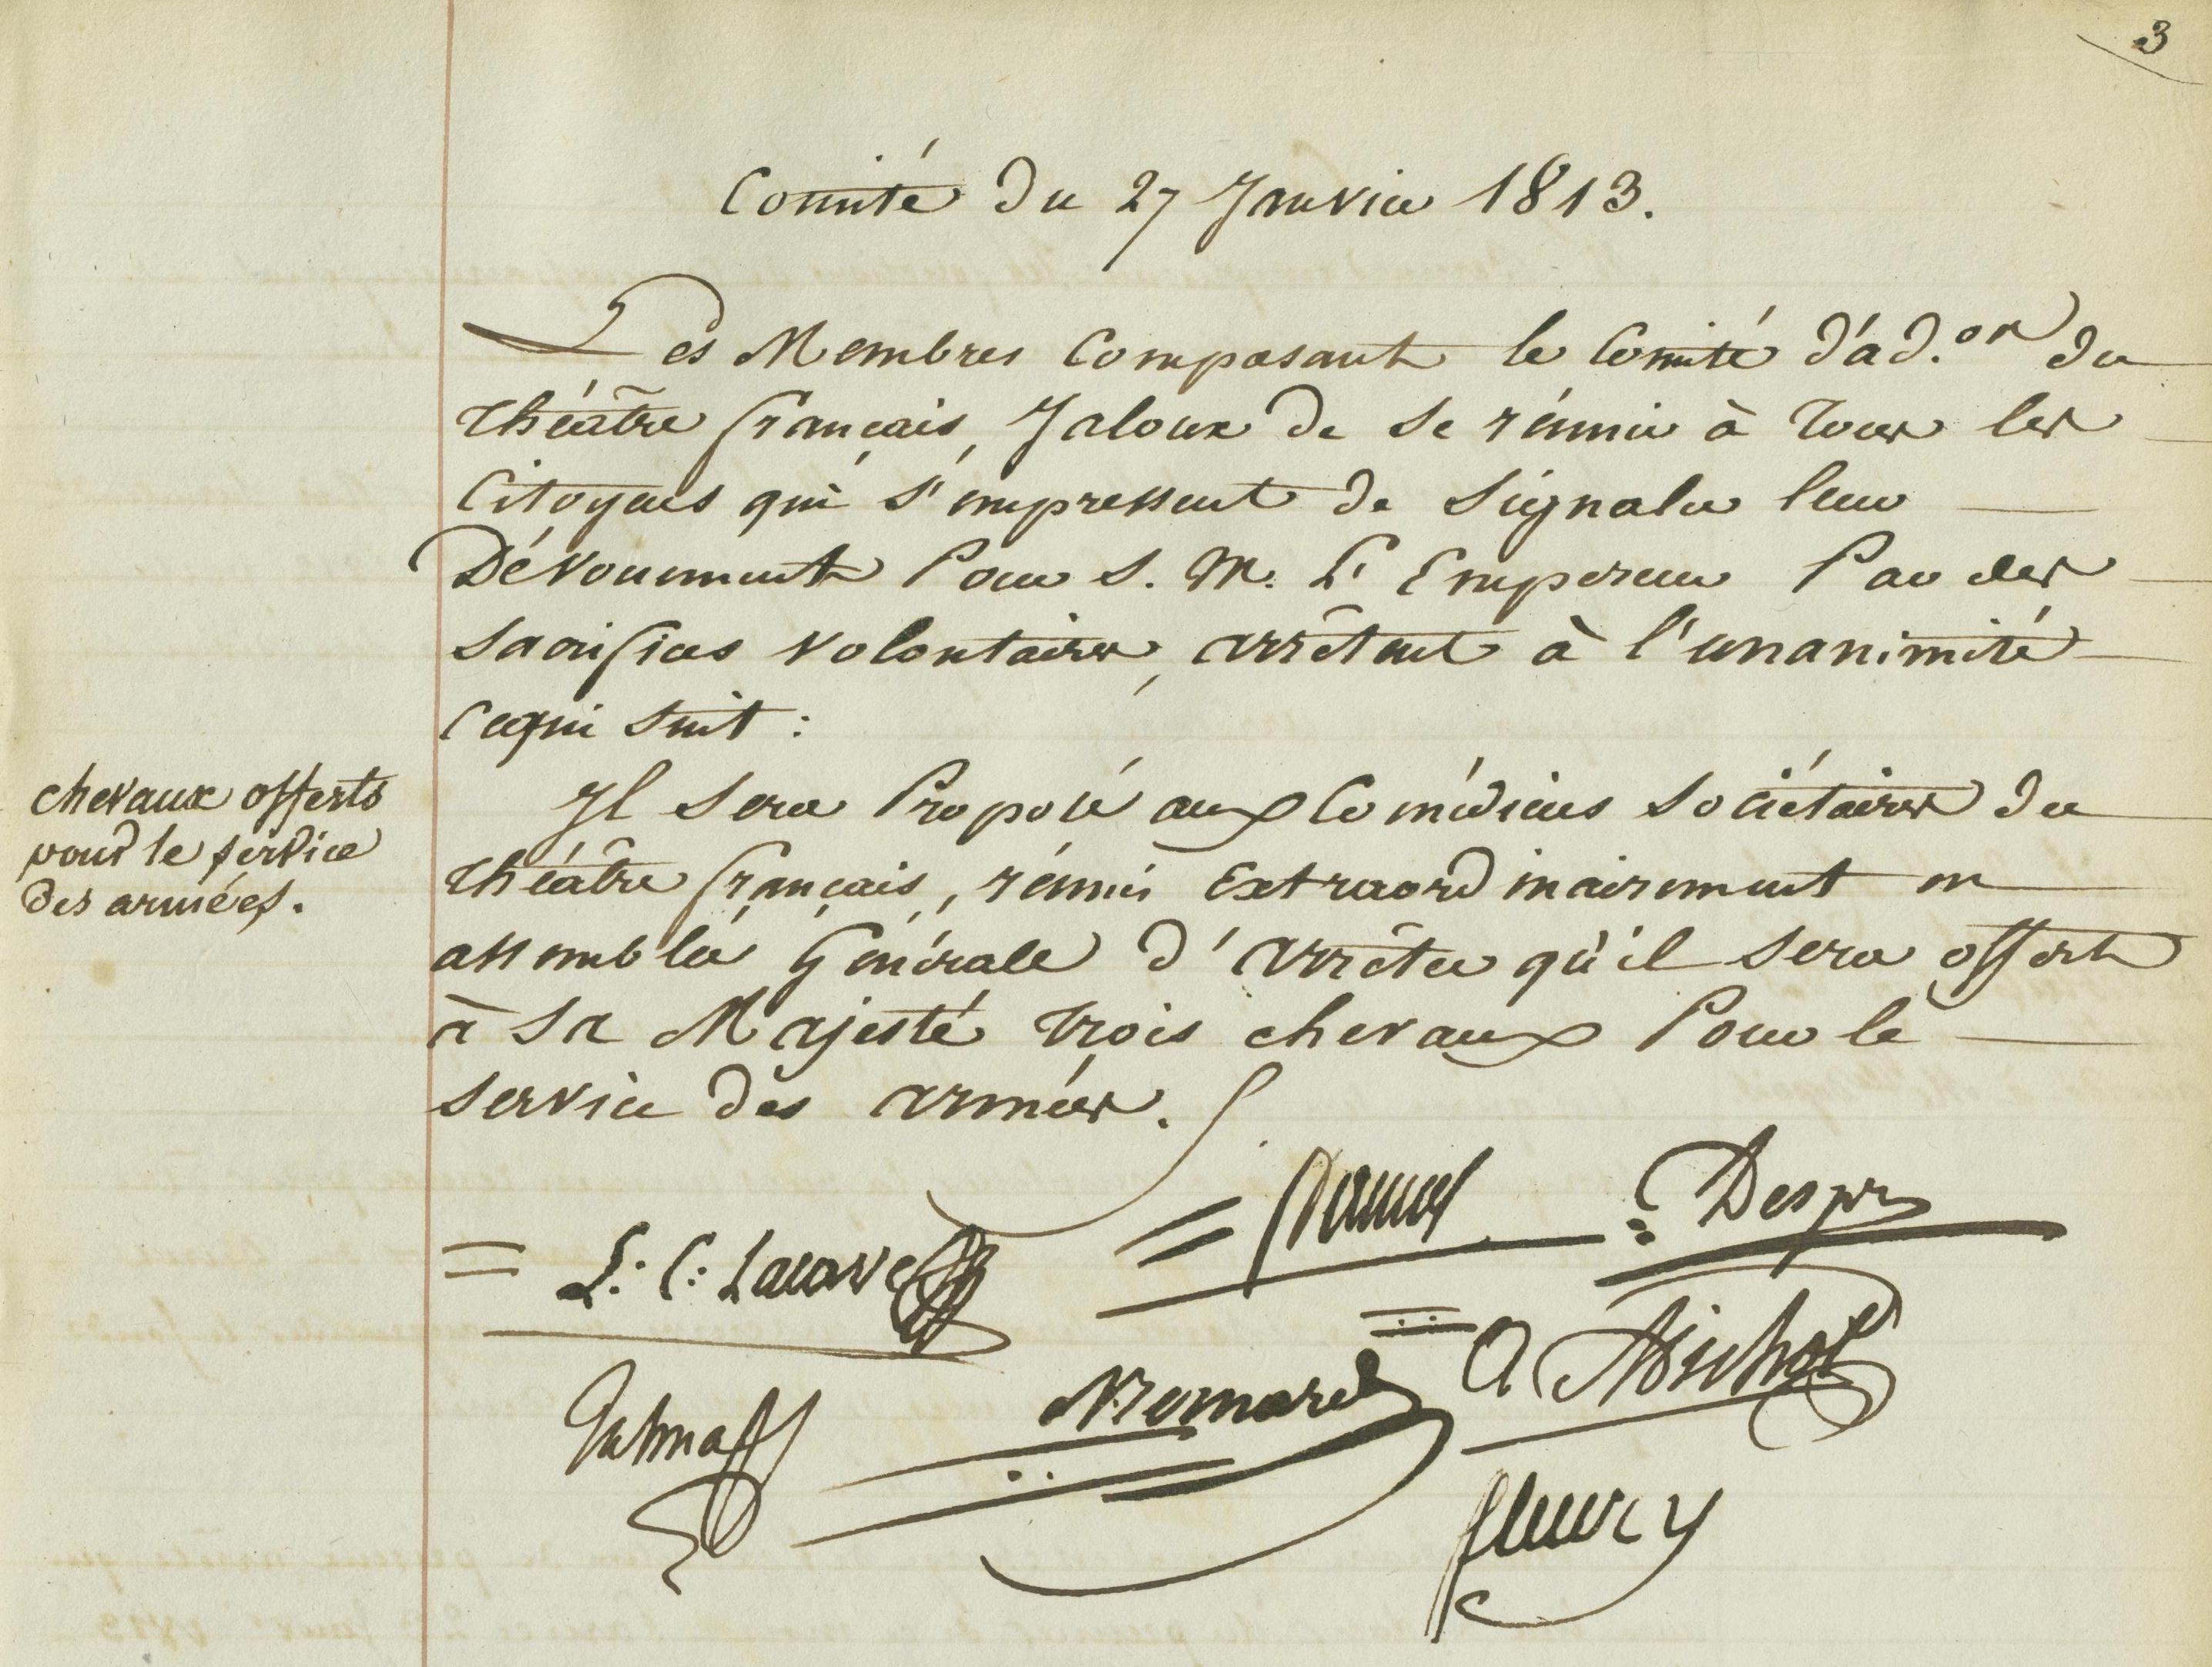 3
Comité du 27 Janvier 1813.
Les Membres Composant le Comité d'ad.on du
théâtre français, Jaloux de se réunir à tous les
Citoyens qui s'empressent de signaler leur
Dévouement Pour S. M. L'Empereur Par des
sacrifices volontaires, arrêtent à l'unanimité
ce qui suit :
chevaux offerts
pour le service
des armées.
Il sera Proposé aux Comédiens sociétaires du
théâtre français, réunis extraordinairement en
assemblée Générale d'arrêter qu'il sera offert
à sa Majesté trois chevaux Pour le
service des armées.
Damas Desprs
L. C. Lacave
A Michot
Talma
fleury